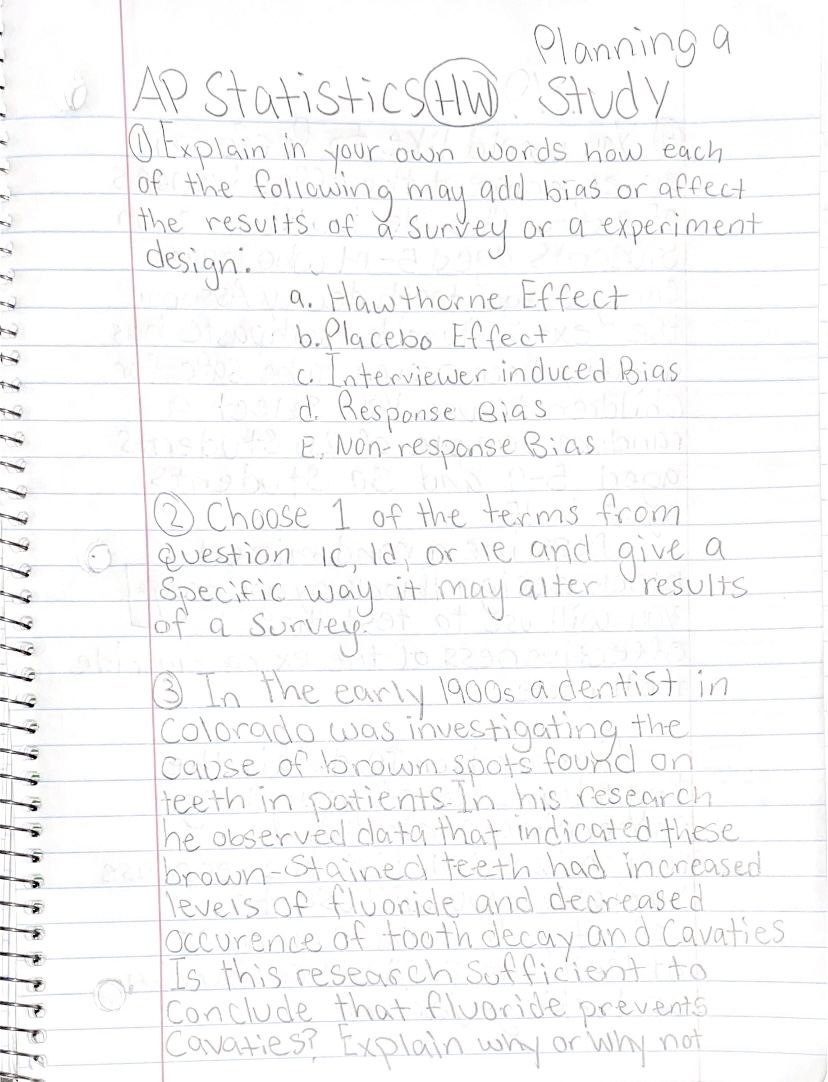 Planning a
AP Statistics HW Study
① Explain in your own words how each
of the following may add bias or affect
the results of a survey or a experiment
design:
a. Hawthorne Effect
b. Placebo Effect
c. Interviewer induced Bias
d. Response Bias
E. Non-response Bias
② Choose 1 of the terms from
Question 1c, 1d, or 1e and give a
Specific way it may alter results
of a Survey.
③ In the early 1900s a dentist in
Colorado was investigating the
cause of brown spots found on
teeth in patients. In his research
he observed data that indicated these
brown-Stained teeth had increased
levels of fluoride and decreased
occurence of tooth decay and Cavaties
Is this research Sufficient to
Conclude that fluoride prevents
Cavaties? Explain why or why not